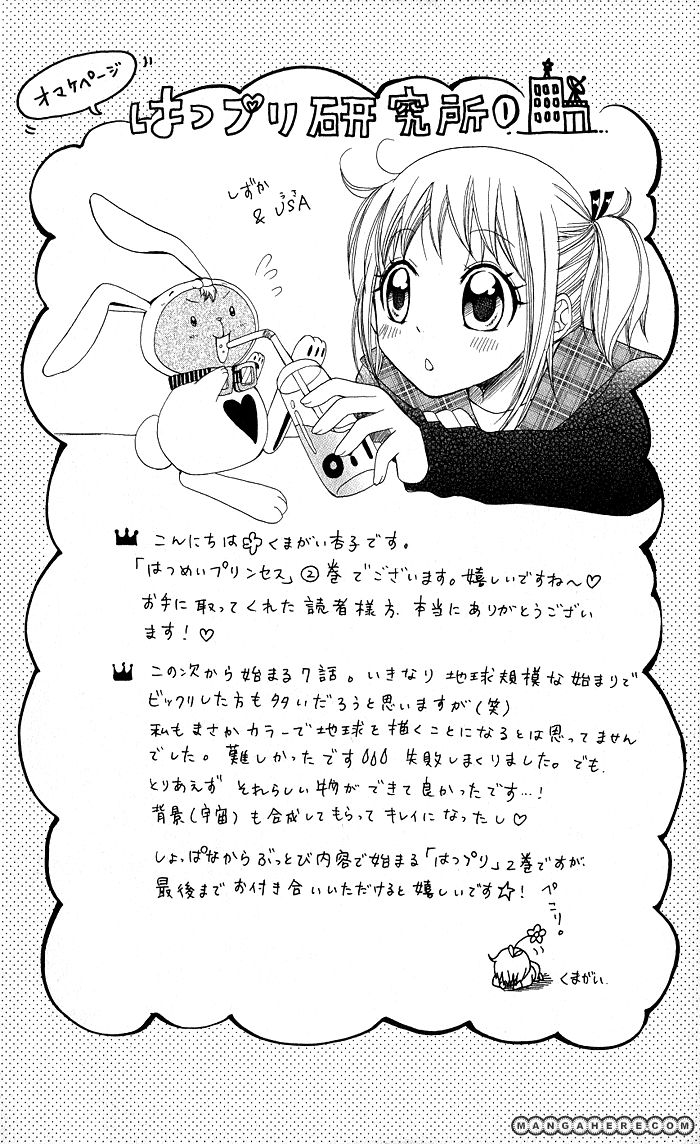 オマケページ
はつプリ研究所①
しずか
& USA
うさ
OIL
こんにちは くまがい杏子です。
「はつめいプリンセス」②巻 でございます。嬉しいですね〜♡
お手に取ってくれた読者様方、本当にありがとうござい
ます!♡
この次から始まる7話。いきなり地球規模な始まりで
ビックリした方も多いだろうと思いますが(笑)
私もまさかカラーで地球を描くことになるとは思ってません
でした。難しかったです 失敗しまくりました。でも、
とりあえず それらしい物ができて良かったです…!
背景(宇宙)も合成してもらってキレイになったし♡
しょっぱなからぶっとび内容で始まる「はつプリ」2巻ですが、
最後までお付き合いいただけると嬉しいです☆!
ペこり。
くまがい
MANGAHERE.COM